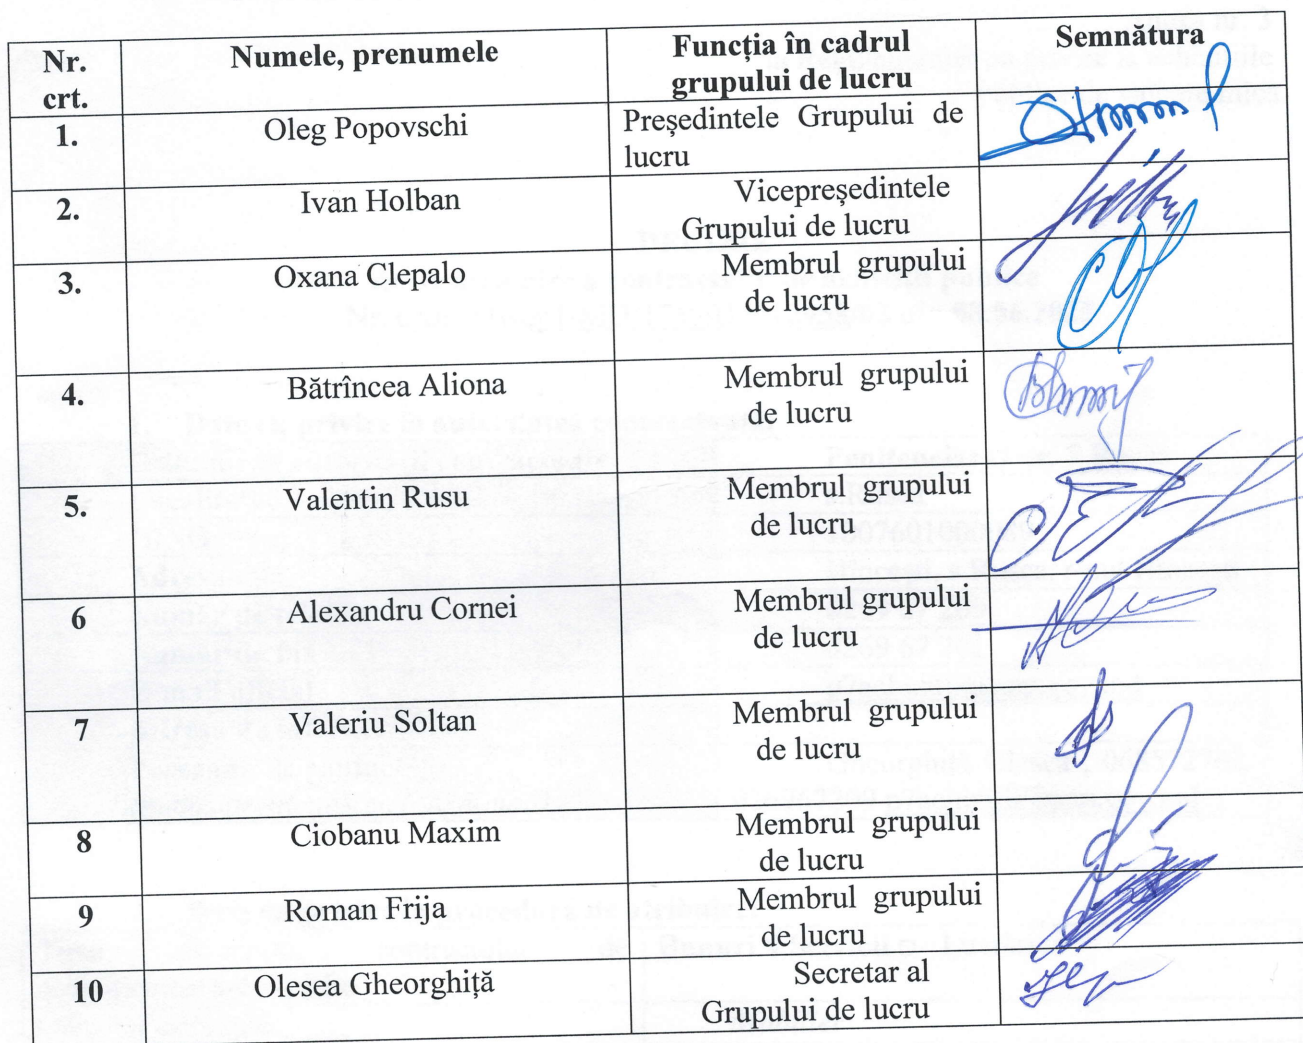 Nr. crt. Numele, prenumele Funcția în cadrul grupului de lucru Semnătura
1. Oleg Popovschi Președintele Grupului de lucru
2. Ivan Holban Vicepreședintele Grupului de lucru
3. Oxana Clepalo Membrul grupului de lucru
4. Bătrîncea Aliona Membrul grupului de lucru
5. Valentin Rusu Membrul grupului de lucru
6 Alexandru Cornei Membrul grupului de lucru
7 Valeriu Soltan Membrul grupului de lucru
8 Ciobanu Maxim Membrul grupului de lucru
9 Roman Frija Membrul grupului de lucru
10 Olesea Gheorghiță Secretar al Grupului de lucru